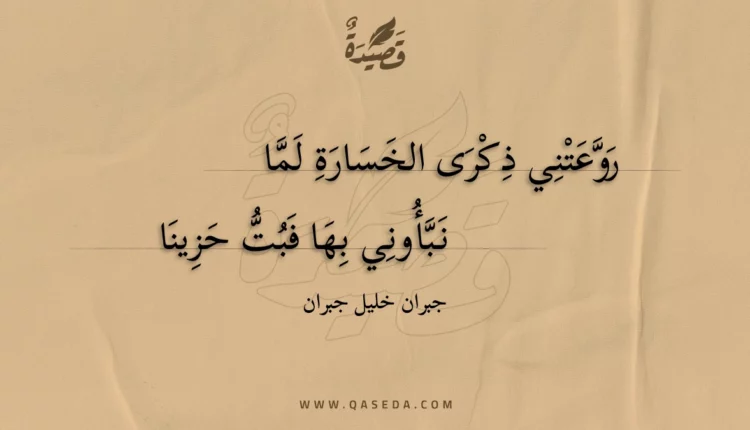 قَصِيدَةٌ
رَوَّعَتْنِي ذِكْرَى الخَسَارَةِ لَمَّا
نَبَّأُونِي بِهَا فَبُتُّ حَزِينَا
جبران خليل جبران
WWW.QASEDA.COM